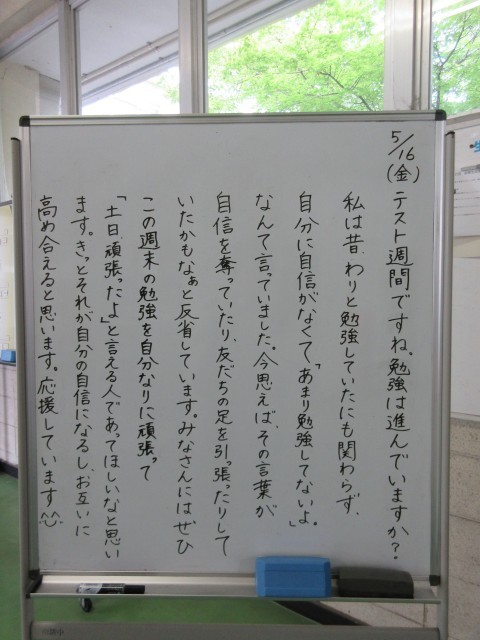 5/16(金) テスト週間ですね。勉強は進んでいますか?
私は昔、わりと勉強していたにも関わらず、
自分に自信がなくて、「あまり勉強してないよ。」
なんて言っていました。今思えば、その言葉が
自信を奪っていたり、友だちの足を引っ張ったりして
いたかもなぁと反省しています。みなさんにはぜひ
この週末の勉強を自分なりに頑張って
「土日、頑張ったよ」と言える人であってほしいなと思い
ます。きっとそれが自分の自信になるし、お互いに
高め合えると思います。応援しています^^